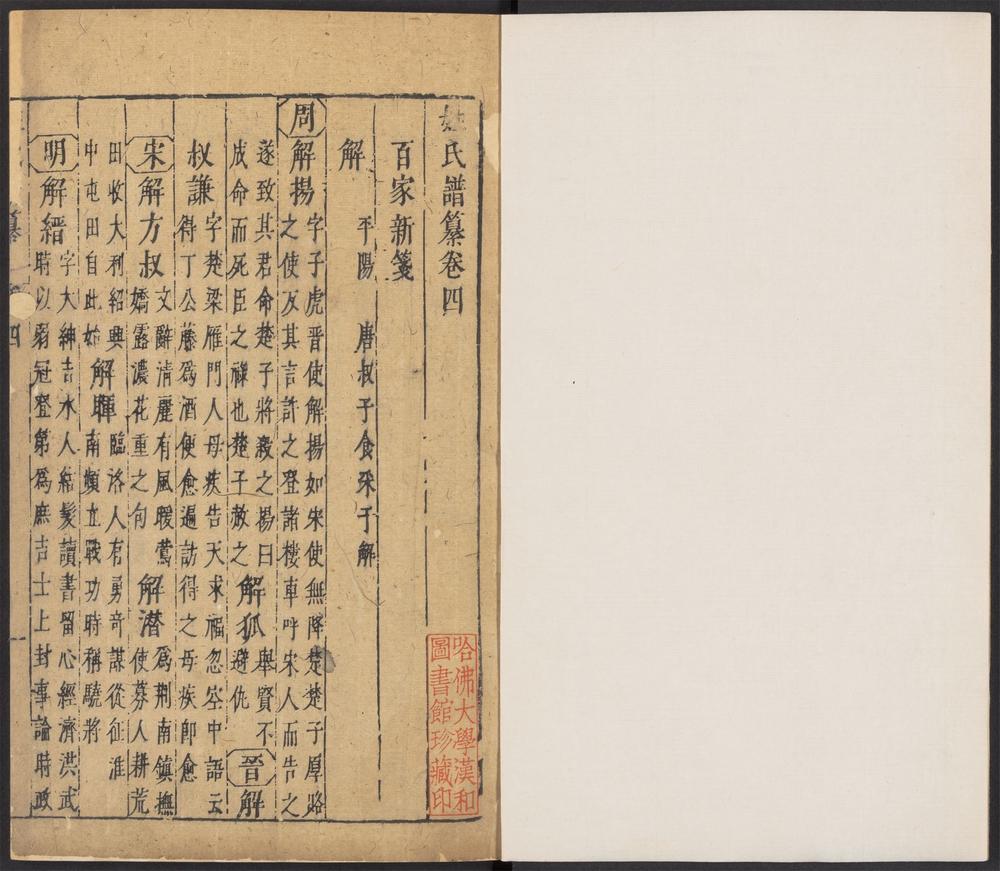 姓氏譜纂卷四
百家新箋
解 平陽 唐叔子食采于解
周 解揚 字子虎晉使解揚如宋使無降楚楚子厚賂
之使反其言許之登諸樓車呼宋人而告之
遂致其君命楚子將殺之揚曰 解狐 舉賢不
成命而死臣之祿也楚子赦之 避仇 晉 解
叔謙 字楚梁雁門人母疾告天求福忽空中語云
得丁公藤爲酒便愈遍訪得之母疾卽愈
宋 解方叔 文辭清麗有風暖鶯 解潛 爲荆南鎮撫
嬌露濃花重之句 使募人耕荒
田收大利紹興 解暉 臨洺人有勇奇謀從征淮
中屯田自此始 南頻立戰功時稱驍將
明 解縉 字大紳吉水人結髮讀書留心經濟洪武
時以弱冠登第爲庶吉士上封事論時政
纂
四
哈佛大學漢和
圖書館珍藏印